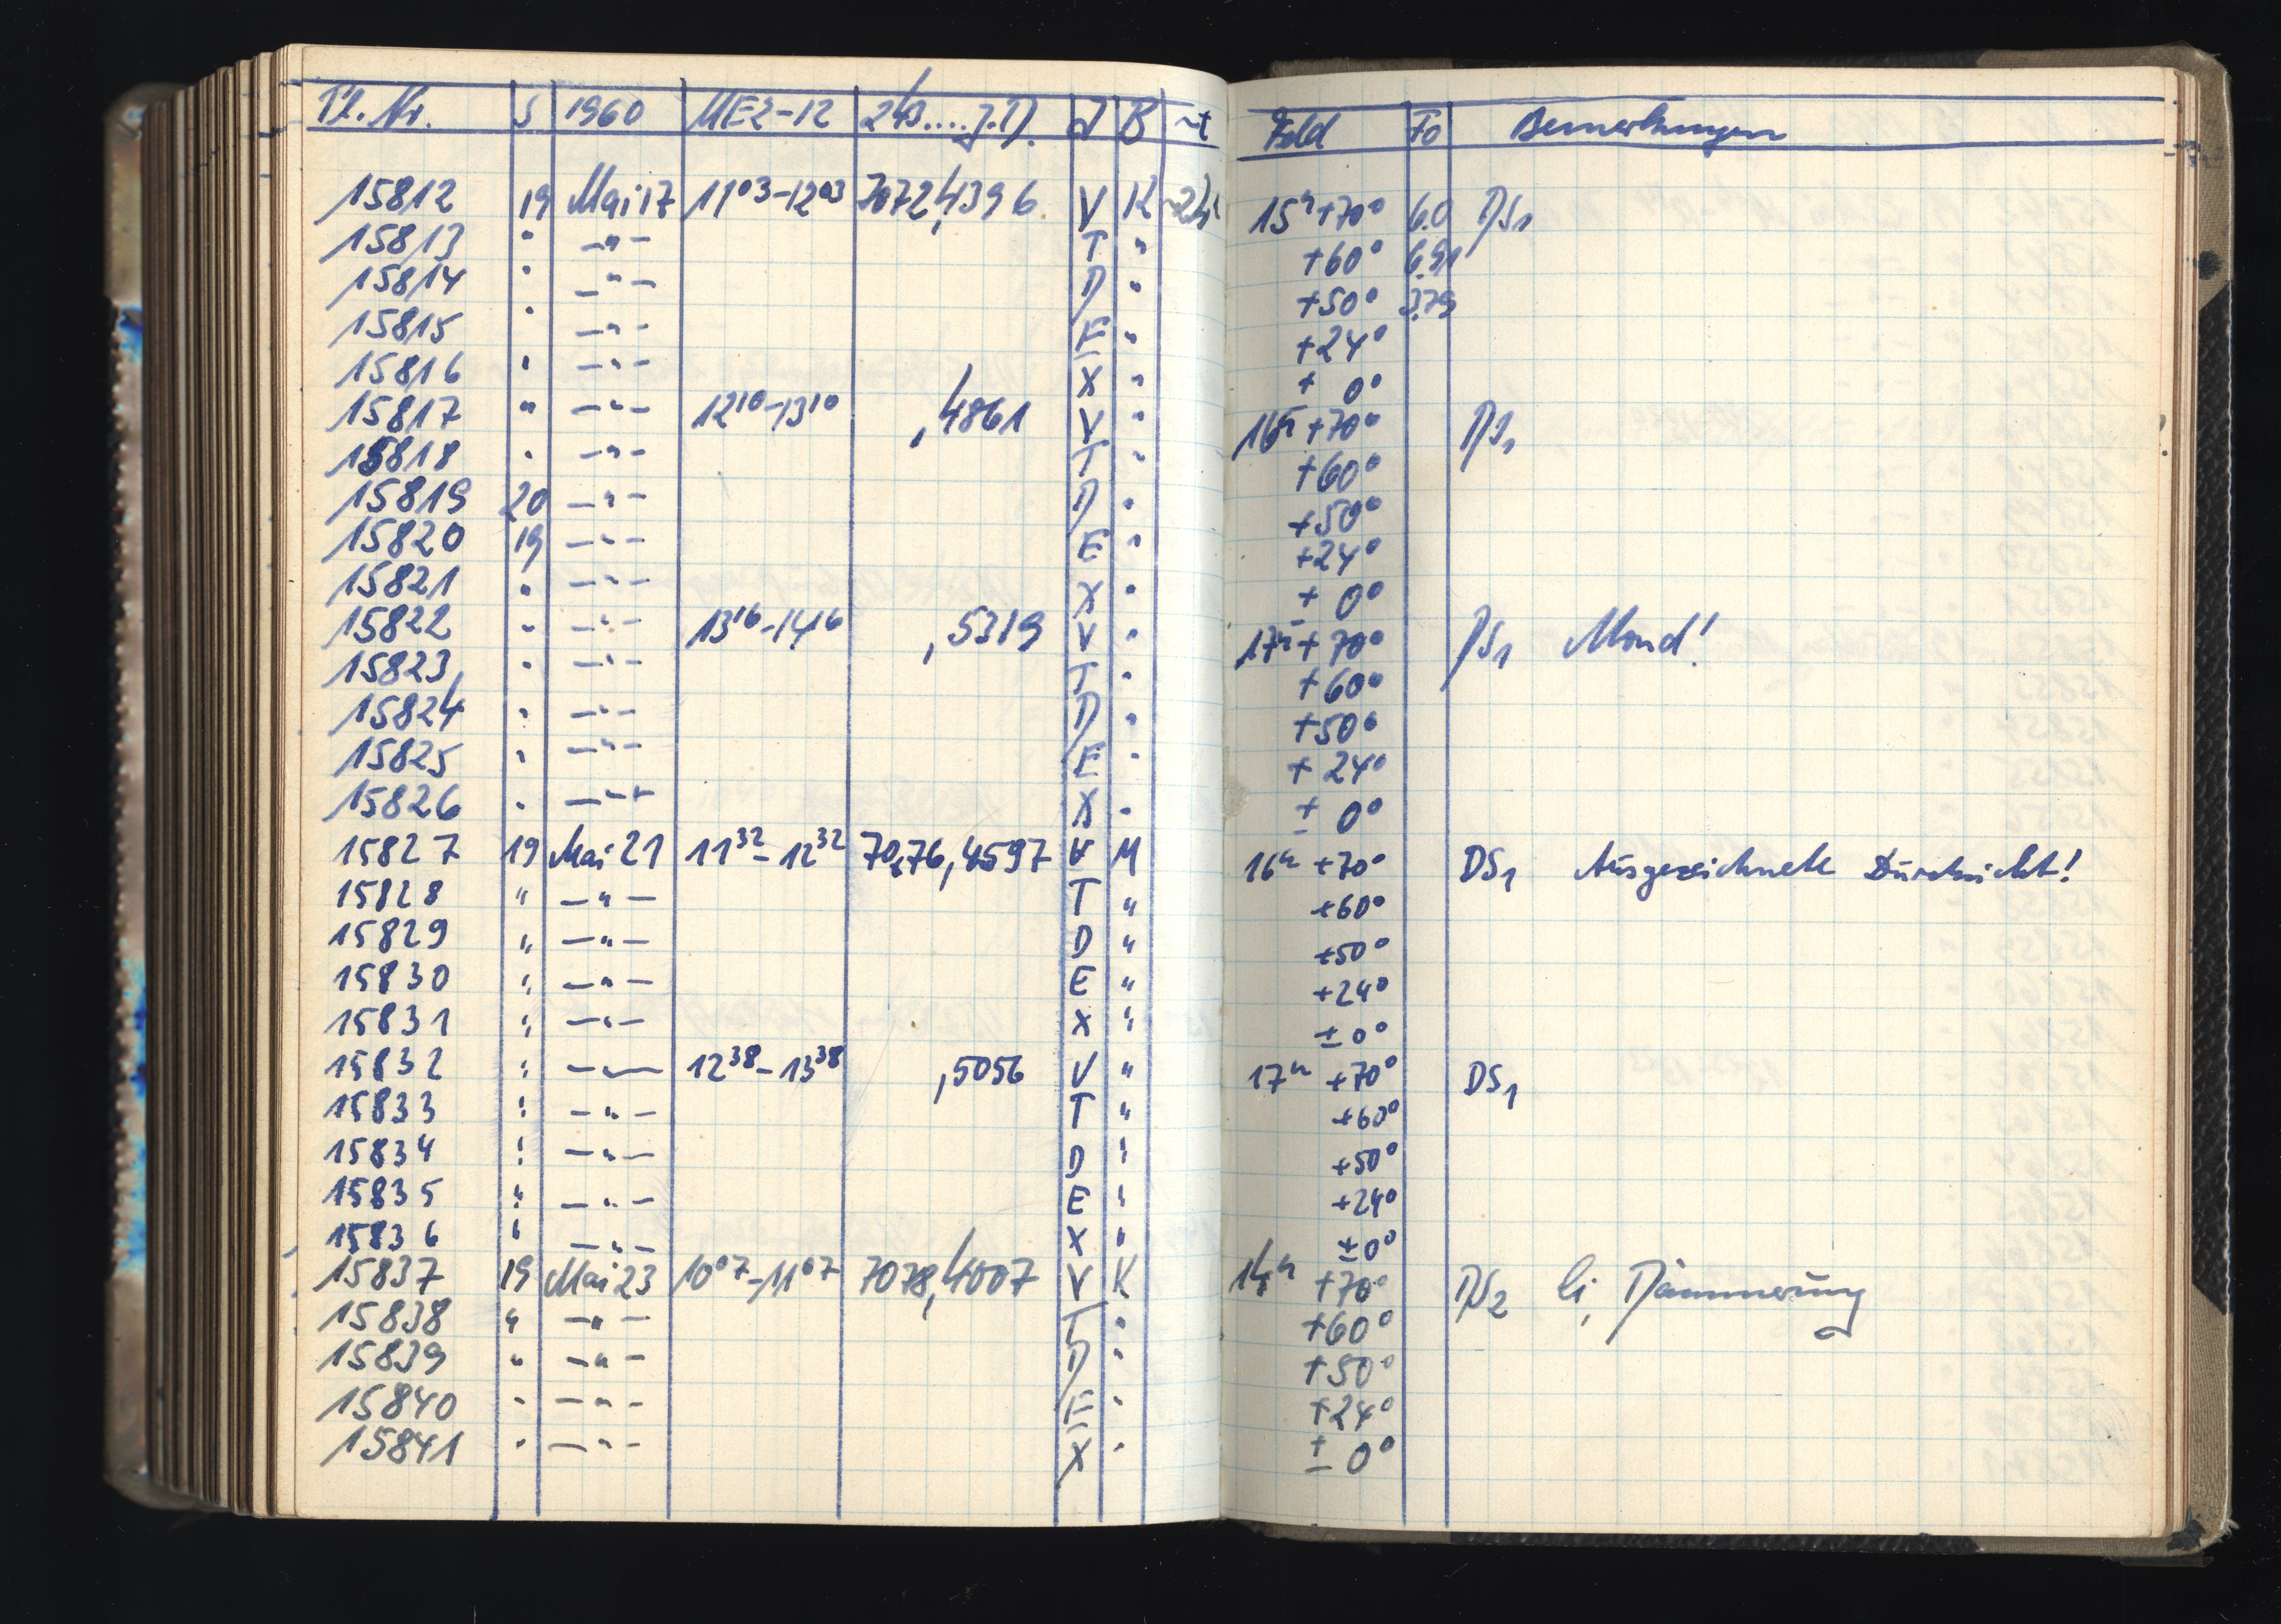 Pl. Nr. S 1960 MEZ-12 243....J.D. J B ~t Feld Fo Bemerkungen
15812 19 Mai 17 11⁰³-12⁰³ 7072,4396 V K ~2h 15ʰ+70° 6.0 DS₁
15813 " —"— T " +60° 6.91
15814 " —"— D " +50° 3.79
15815 " —"— E " +24°
15816 " —"— X " ± 0°
15817 " —"— 12¹⁰-13¹⁰ ,4861 V " 16ʰ+70° DS₁
15818 " —"— T " +60°
15819 20 —"— D " +50°
15820 19 —"— E " +24°
15821 " —"— X " ± 0°
15822 " —"— 13¹⁶-14¹⁶ ,5319 V " 17ʰ+70° DS₁ Mond!
15823 " —"— T " +60°
15824 " —"— D " +50°
15825 " —"— E " +24°
15826 " —"— X " ± 0°
15827 19 Mai 21 11³²-12³² 7076,4597 V M 16ʰ +70° DS₁ Ausgezeichnete Durchsicht!
15828 " —"— T " +60°
15829 " —"— D " +50°
15830 " —"— E " +24°
15831 " —"— X " ±0°
15832 " —"— 12³⁸-13³⁸ ,5056 V " 17ʰ +70° DS₁
15833 " —"— T " +60°
15834 " —"— D " +50°
15835 " —"— E " +24°
15836 " —"— X " ±0°
15837 19 Mai 23 10⁰⁷-11⁰⁷ 7078,4007 V K 14ʰ +70° DS₂ Ci, Dämmerung
15838 " —"— T " +60°
15839 " —"— D " +50°
15840 " —"— E " +24°
15841 " —"— X " ± 0°